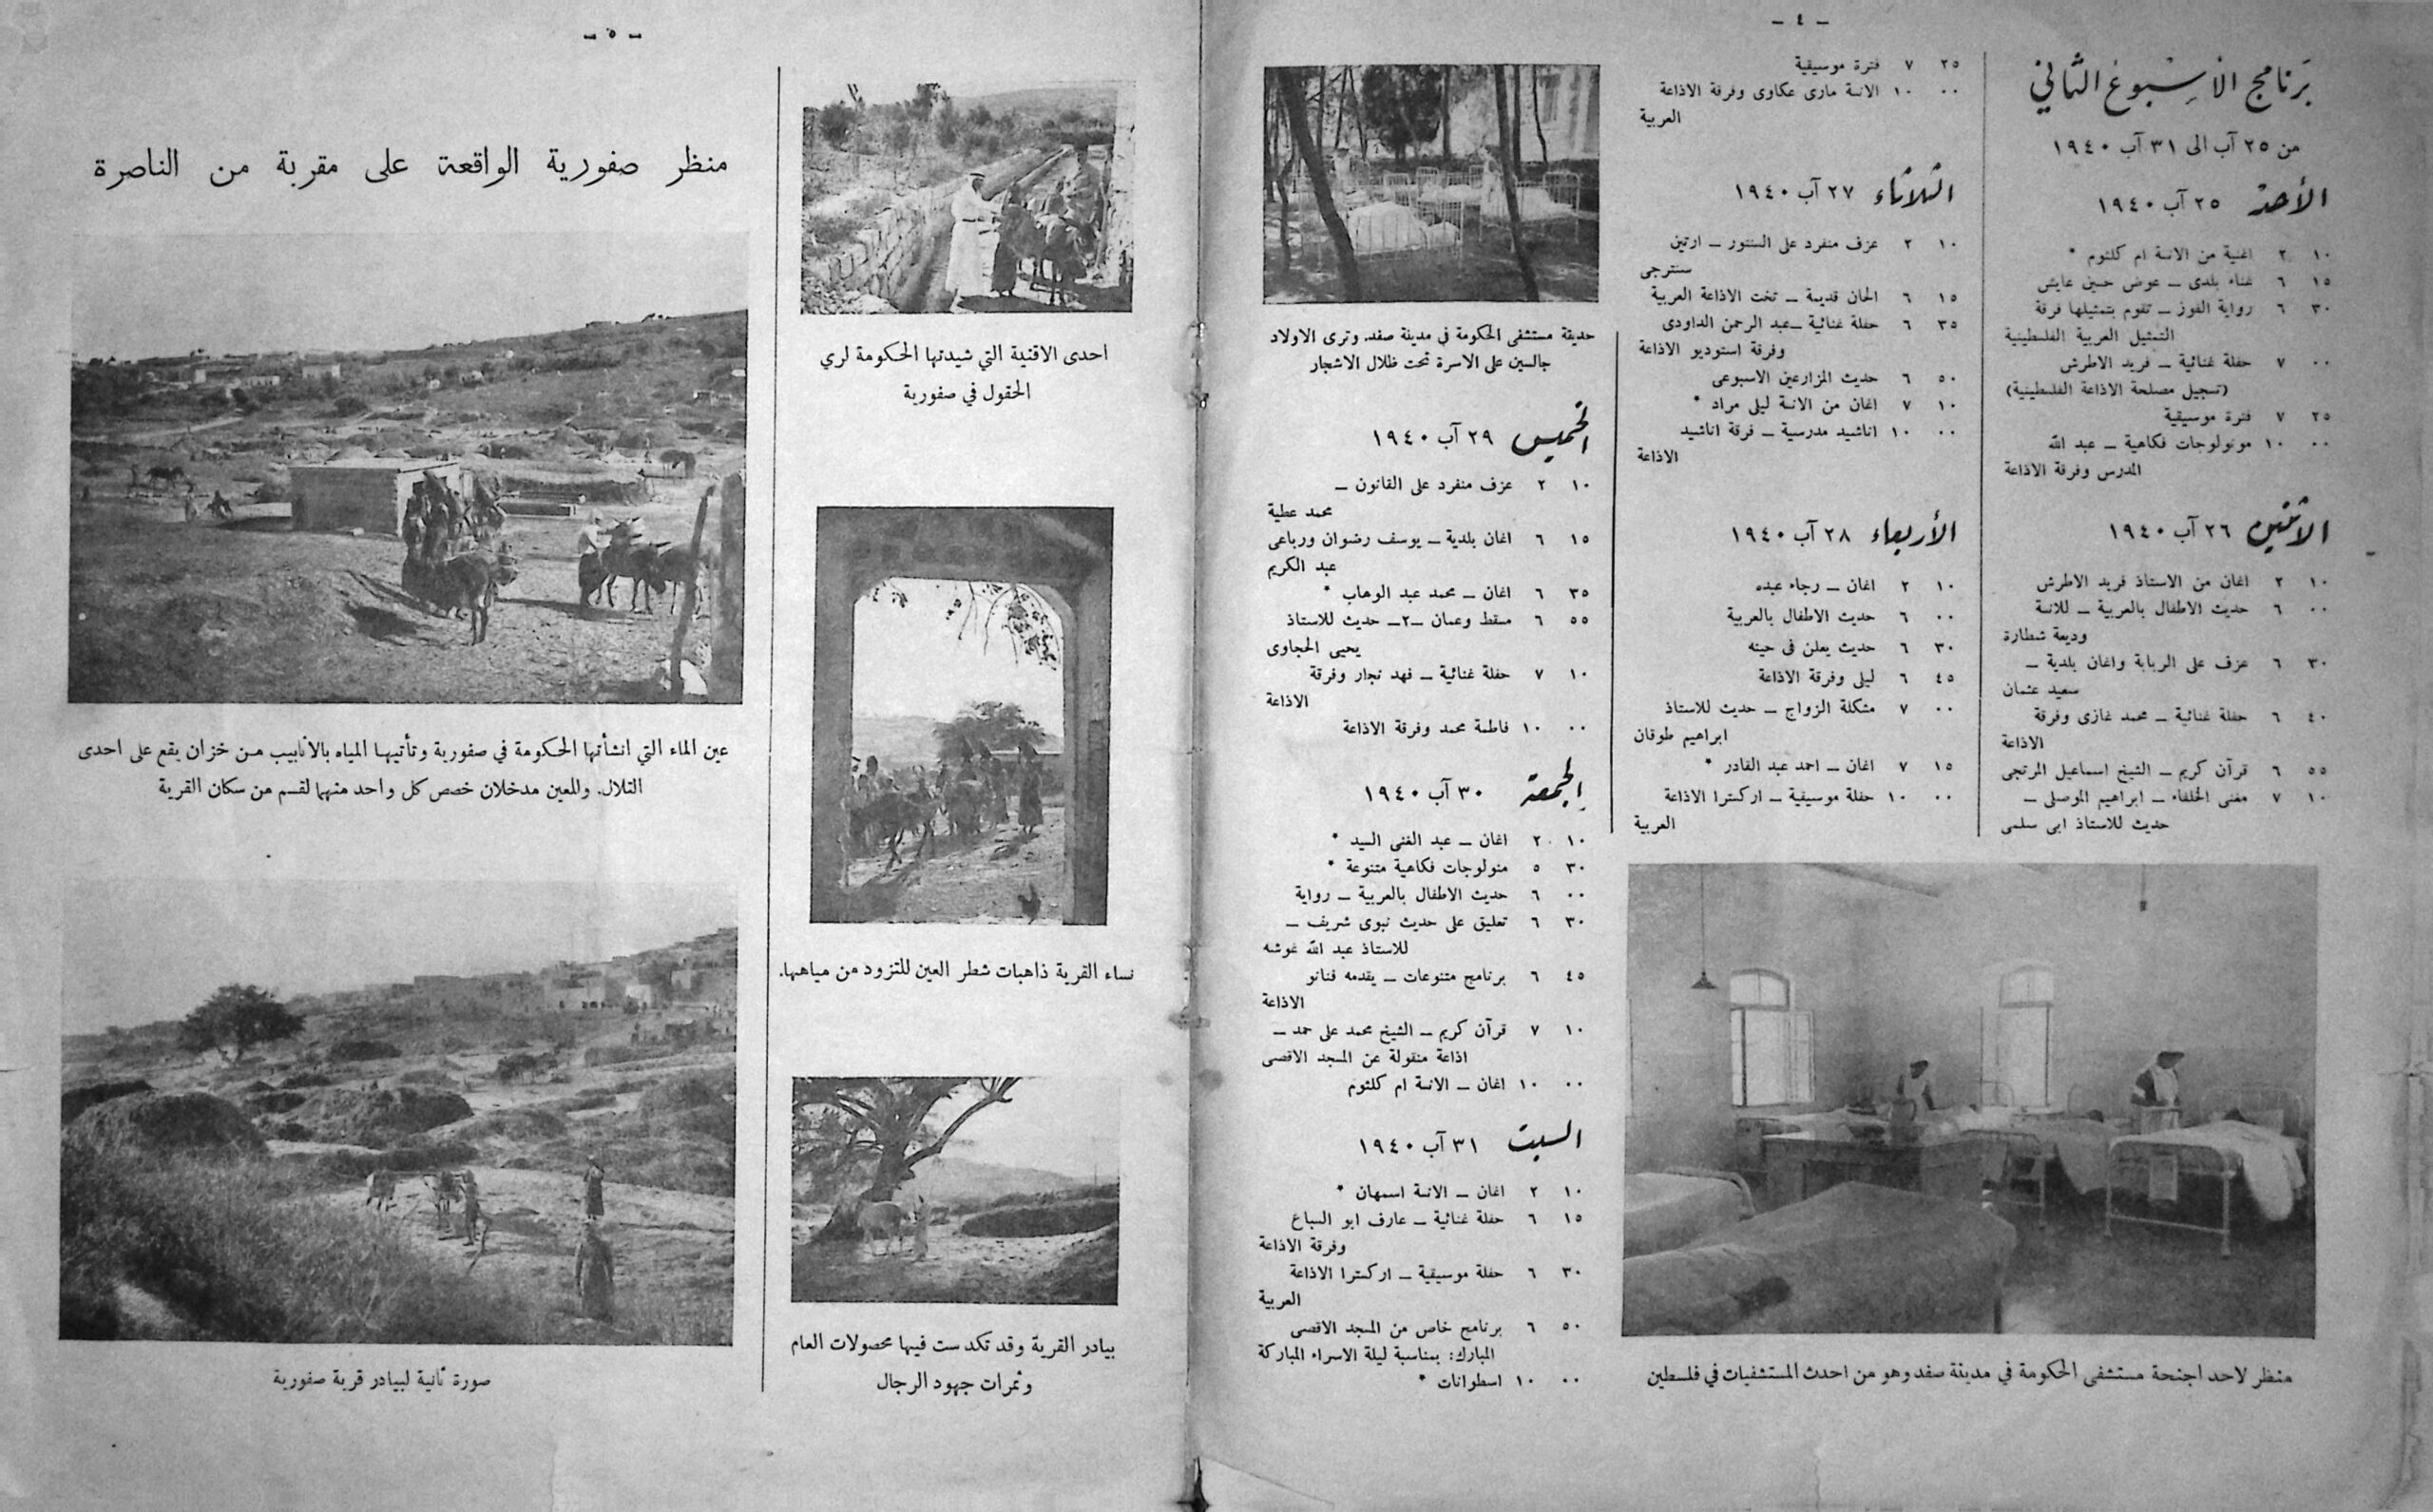 - ٤ -
برنامج الأسبوع الثاني
من ٢٥ آب الى ٣١ آب ١٩٤٠
الأحد ٢٥ آب ١٩٤٠
١٠ ٢ اغنية من الانسة ام كلثوم *
١٥ ٦ غناء بلدى – عوض حسين عايش
٣٠ ٦ رواية الفوز – تقوم بتمثيلها فرقة
التمثيل العربية الفلسطينية
٠٠ ٧ حفلة غنائية – فريد الاطرش
(تسجيل مصلحة الاذاعة الفلسطينية)
٢٥ ٧ فترة موسيقية
٠٠ ١٠ مونولوجات فكاهية – عبد الله
المدرس وفرقة الاذاعة
الاثنين ٢٦ آب ١٩٤٠
١٠ ٢ اغان من الاستاذ فريد الاطرش
٠٠ ٦ حديث الاطفال بالعربية – للانسة
وديعة شطارة
٣٠ ٦ عزف على الربابة واغان بلدية –
سعيد عثمان
٤٠ ٦ حفلة غنائية – محمد غازى وفرقة
الاذاعة
٥٥ ٦ قرآن كريم – الشيخ اسماعيل المرتجى
١٠ ٧ مغنى الخلفاء – ابراهيم الموصلى –
حديث للاستاذ ابى سلمى
٢٥ ٧ فترة موسيقية
٠٠ ١٠ الانسة مارى عكاوى وفرقة الاذاعة
العربية
الثلاثاء ٢٧ آب ١٩٤٠
١٠ ٢ عزف منفرد على السنتور – ارتين
سنترجى
١٥ ٦ الحان قديمة – تخت الاذاعة العربية
٣٥ ٦ حفلة غنائية – عبد الرحمن الداودى
وفرقة استوديو الاذاعة
٥٠ ٦ حديث المزارعين الاسبوعى
١٠ ٧ اغان من الانسة ليلى مراد *
٠٠ ١٠ اناشيد مدرسية – فرقة اناشيد
الاذاعة
الأربعاء ٢٨ آب ١٩٤٠
١٠ ٢ اغان – رجاء عبده
٠٠ ٦ حديث الاطفال بالعربية
٣٠ ٦ حديث يعلن فى حينه
٤٥ ٦ ليلى وفرقة الاذاعة
٠٠ ٧ مشكلة الزواج – حديث للاستاذ
ابراهيم طوقان
١٥ ٧ اغان – احمد عبد القادر *
٠٠ ١٠ حفلة موسيقية – اركسترا الاذاعة
العربية
منظر لاحد اجنحة مستشفى الحكومة في مدينة صفد وهو من احدث المستشفيات في فلسطين
حديقة مستشفى الحكومة في مدينة صفد. وترى الاولاد
جالسين على الاسرة تحت ظلال الاشجار
الخميس ٢٩ آب ١٩٤٠
١٠ ٢ عزف منفرد على القانون –
محمد عطية
١٥ ٦ اغان بلدية – يوسف رضوان ورباعى
عبد الكريم
٣٥ ٦ اغان – محمد عبد الوهاب *
٥٥ ٦ مسقط وعمان –٢– حديث للاستاذ
يحيى الحجاوى
١٠ ٧ حفلة غنائية – فهد نجار وفرقة
الاذاعة
٠٠ ١٠ فاطمة محمد وفرقة الاذاعة
الجمعة ٣٠ آب ١٩٤٠
١٠ ٢ اغان – عبد الغنى السيد *
٣٠ ٥ منولوجات فكاهية متنوعة *
٠٠ ٦ حديث الاطفال بالعربية – رواية
٣٠ ٦ تعليق على حديث نبوى شريف –
للاستاذ عبد الله غوشه
٤٥ ٦ برنامج متنوعات – يقدمه فنانو
الاذاعة
١٠ ٧ قرآن كريم – الشيخ محمد على حمد –
اذاعة منقولة عن المسجد الاقصى
٠٠ ١٠ اغان – الانسة ام كلثوم
السبت ٣١ آب ١٩٤٠
١٠ ٢ اغان – الانسة اسمهان *
١٥ ٦ حفلة غنائية – عارف ابو السباع
وفرقة الاذاعة
٣٠ ٦ حفلة موسيقية – اركسترا الاذاعة
العربية
٥٠ ٦ برنامج خاص من المسجد الاقصى
المبارك: بمناسبة ليلة الاسراء المباركة
٠٠ ١٠ اسطوانات *
- ٥ -
منظر صفورية الواقعة على مقربة من الناصرة
احدى الاقنية التي شيدتها الحكومة لري
الحقول في صفورية
نساء القرية ذاهبات شطر العين للتزود من مياهها.
بيادر القرية وقد تكدست فيها محصولات العام
وثمرات جهود الرجال
عين الماء التي انشأتها الحكومة في صفورية وتأتيها المياه بالانابيب من خزان يقع على احدى
التلال. وللعين مدخلان خصص كل واحد منهما لقسم من سكان القرية
صورة ثانية لبيادر قرية صفورية